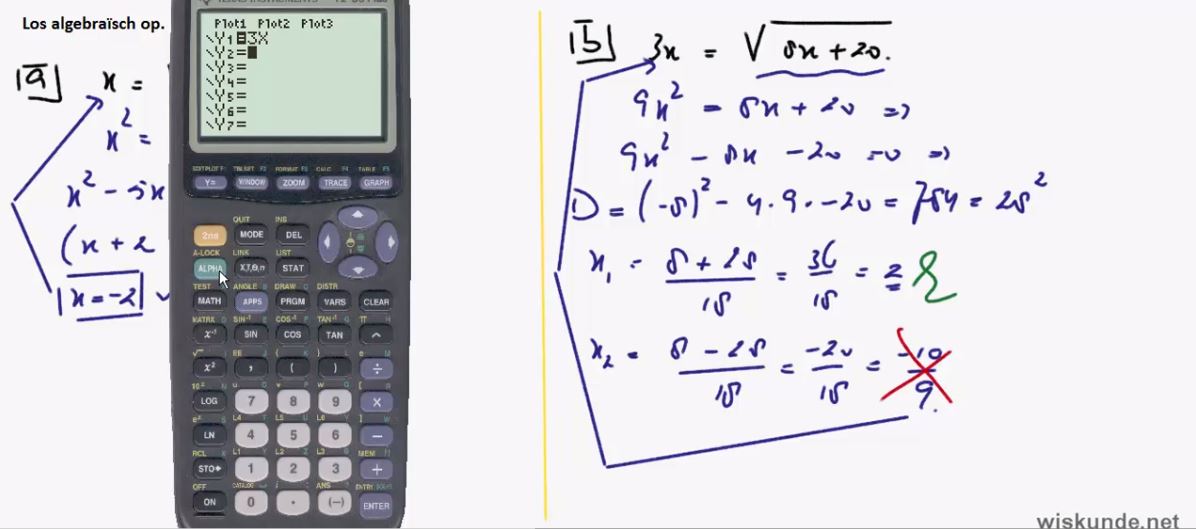 Los algebraïsch op.
a
x =
x² =
x² - 8x
(x + 2
x = -2
Plot1 Plot2 Plot3
\Y1=3X
\Y2=
\Y3=
\Y4=
\Y5=
\Y6=
\Y7=
STAT PLOT F1 TBLSET F2 FORMAT F3 CALC F4 TABLE F5
Y= WINDOW ZOOM TRACE GRAPH
QUIT INS
2nd MODE DEL
A-LOCK LINK LIST
ALPHA X,T,Θ,n STAT
TEST A ANGLE B DRAW C DISTR
MATH APPS PRGM VARS CLEAR
MATRX D SIN⁻¹ E COS⁻¹ F TAN⁻¹ G π H
x⁻¹ SIN COS TAN ^
√ I EE J { K } L e M
x² , ( ) ÷
10ˣ N u O v P w Q [ R
LOG 7 8 9 ×
eˣ S L4 T L5 U L6 V ] W
LN 4 5 6 −
RCL X L1 Y L2 Z L3 θ MEM "
STO▸ 1 2 3 +
OFF CATALOG i : ANS ? ENTRY SOLVE
ON 0 . (−) ENTER
b 3x = √8x + 20.
9x² = 8x + 20 =>
9x² - 8x - 20 = 0 =>
D = (-8)² - 4 · 9 · -20 = 784 = 28²
x₁ = 8 + 28 / 18 = 36 / 18 = 2
x₂ = 8 - 28 / 18 = -20 / 18 = -10 / 9.
wiskunde.net